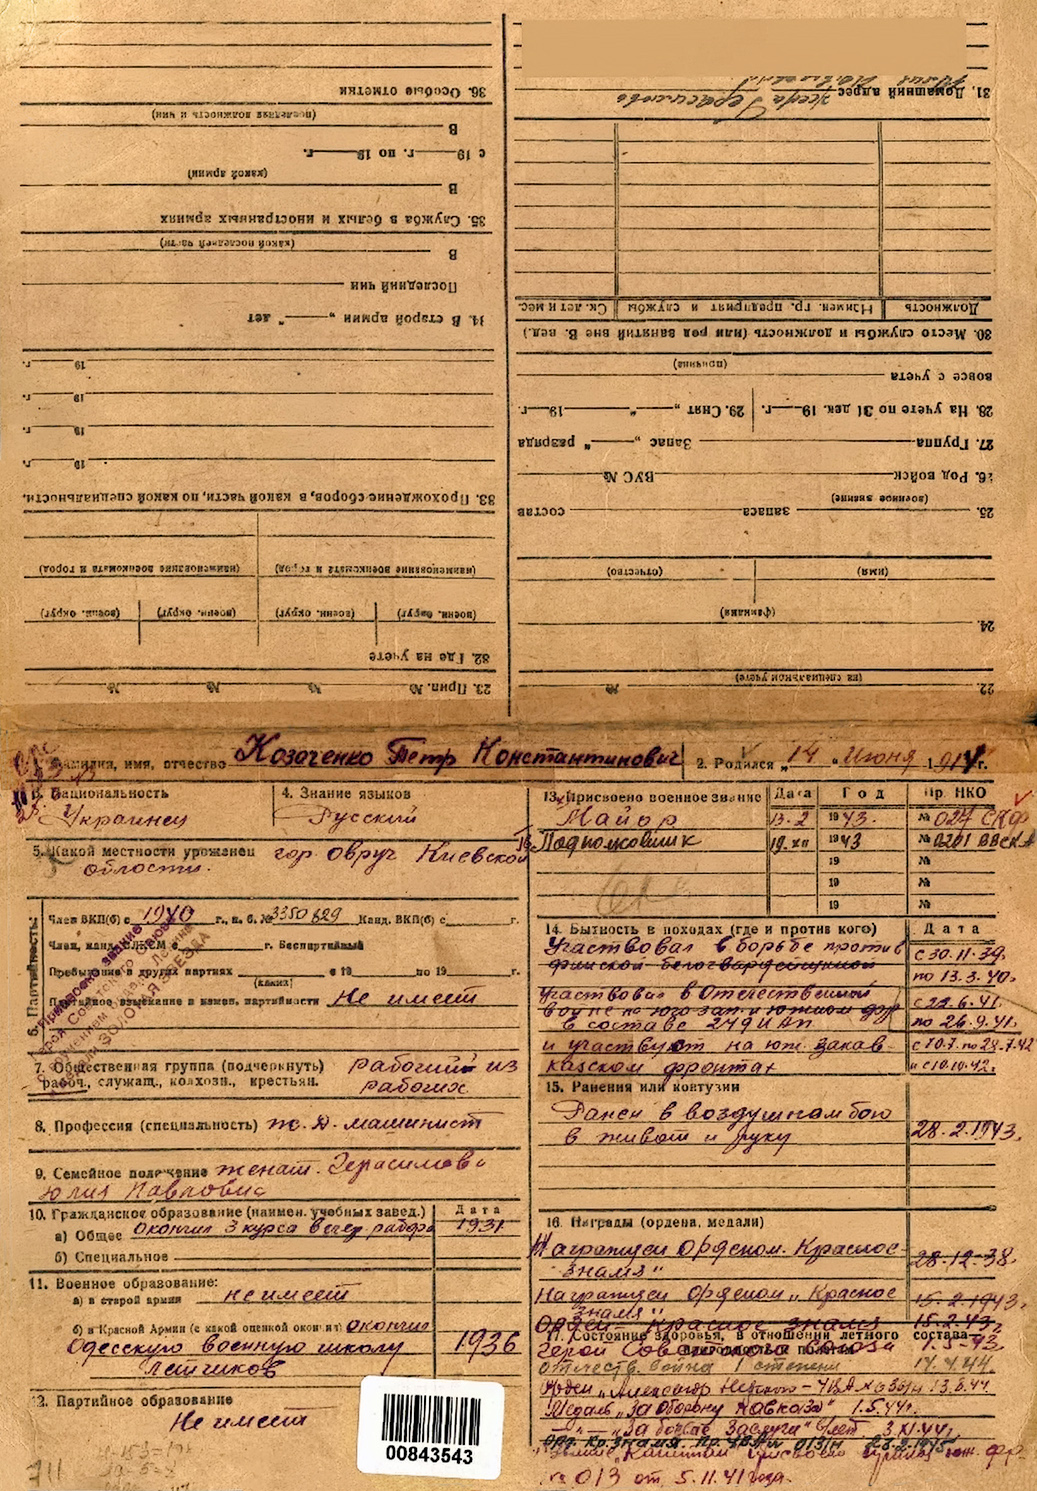 36. Особые отметки
(последняя должность и чин)
В
с 19 г. по 19 г.
(какой армии)
В
35. Служба в белых и иностранных армиях
(какой последней части)
В
Последний чин
34. В старой армии „ " лет
19 г.
19 г.
19 г.
19 г.
33. Прохождение сборов, в какой части, по какой специальности.
(наименование военкомата и город) (наименование военкомата и город)
(воен. округ) (воен. округ) (воен. округ) (воен. округ)
32. Где на учете
23. Прип. № № № №
31. Домашний адрес жена Герасимова
Юлия Павловна
Должность Наимен. гр. предприят и службы Ск. лет и мес.
30. Место службы и должность (или род занятий вне В. вед.)
(причина)
вовсе с учета
28. На учете по 31 дек. 19 г. 29. Снят „ " 19 г.
27. Группа Запас „ " разряда
26. Род войск ВУС №
(военное звание)
25. запаса состав
(имя) (отчество)
(фамилия)
24.
(на специальном учете)
22. №
Фамилия, имя, отчество Козаченко Петр Константинович
2. Родился „14" Июня 1914 г.
3. Национальность
Украинец
4. Знание языков
Русский
5. Какой местности уроженец гор. Овруч Киевской
области.
6. Партийность:
Член ВКП(б) с 1940 г., п. б. № 3350829 Канд. ВКП(б) с г.
Член, канд. ВЛКСМ с г. Беспартийный
Пребывание в других партиях с 19 по 19 г.
(каких)
Партийное взыскание и измен. партийности Не имеет
Присвоено звание
Героя Советского Союза
с вручением Ордена Ленина
и медали ЗОЛОТАЯ ЗВЕЗДА
7. Общественная группа (подчеркнуть) рабочий из
рабоч., служащ., колхозн., крестьян. рабочих
8. Профессия (специальность) ж. д. машинист
9. Семейное положение женат. Герасимова
Юлия Павловна
10. Гражданское образование (наимен. учебных завед.) Дата
а) Общее окончил 3 курса вечер. рабфа 1931
б) Специальное
11. Военное образование:
а) в старой армии не имеет
б) в Красной Армии (с какой оценкой окончил) окончил
Одесскую военную школу 1936
летчиков
12. Партийное образование
Не имеет
13. Присвоено военное звание Дата Год Пр. НКО
Майор 13.2 1943. № 024 СКФ
Подполковник 19.XII 1943 № 0201
19 №
19 №
19 №
14. Бытность в походах (где и против кого) Дата
Участвовал в борьбе против с 30.11.39.
финской белогвардейщиной по 13.3.40.
Участвовал в Отечественной с 22.6.41.
войне по юго зап. и южном фр. по 26.9.41.
в составе 249 ИАП
и участвует на юж. Закав- с 10.1. по 28.7.42
казском фронтах и с 10.10.42.
15. Ранения или контузии
Ранен в воздушном бою
в живот и руку 28.2.1943.
16. Награды (ордена, медали)
Награжден Орденом. Красное 28.12.38.
Знамя"
Награжден Орденом „Красное 15.2.1943.
Знамя"
Орден Красное знамя 15.2.43.
17. Состояние здоровья, в отношении летного состава
Герой Советского Союза 1.5.43.
Отечеств. война I степени 14.4.44.
Орден „Александр Невского" 13.8.44
Медаль „За оборону Кавказа" 1.5.44г.
" „За боевые Заслуги" 3.XI.44г.
Орд. Кр. Знамя. Пр. 013/н 23.2.1945г.
Звание „Капитан" присвоено приказ юж. фр.
№ 013 от 5.11.41 года.
00843543